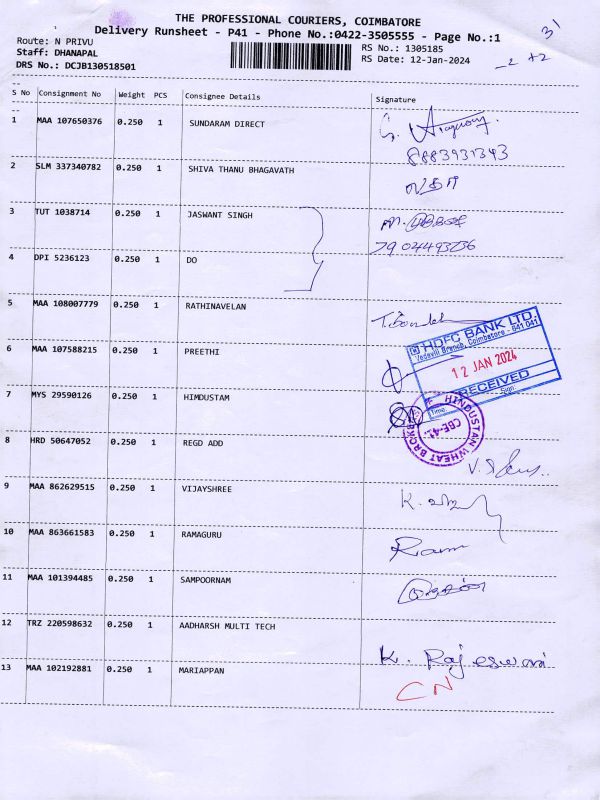 THE PROFESSIONAL COURIERS, COIMBATORE
Delivery Runsheet - P41 - Phone No.:0422-3505555 - Page No.:1
Route: N PRIVU
Staff: DHANAPAL
DRS No.: DCJB130518501
RS No.: 1305185
RS Date: 12-Jan-2024
S No Consignment No Weight PCS Consignee Details Signature
1 MAA 107650376 0.250 1 SUNDARAM DIRECT
8883931343
2 SLM 337340782 0.250 1 SHIVA THANU BHAGAVATH
3 TUT 1038714 0.250 1 JASWANT SINGH
7904493236
4 DPI 5236123 0.250 1 DO
5 MAA 108007779 0.250 1 RATHINAVELAN
6 MAA 107588215 0.250 1 PREETHI
HDFC BANK LTD.
Vadavalli Branch, Coimbatore - 641 041
12 JAN 2024
RECEIVED
Time: Sign
7 MYS 29590126 0.250 1 HIMDUSTAM
HINDUSTAN WHEAT BROK
CBE-41.
8 HRD 50647052 0.250 1 REGD ADD
9 MAA 862629515 0.250 1 VIJAYSHREE
10 MAA 863661583 0.250 1 RAMAGURU
Ram
11 MAA 101394485 0.250 1 SAMPOORNAM
12 TRZ 220598632 0.250 1 AADHARSH MULTI TECH
K. Rajeswari
13 MAA 102192881 0.250 1 MARIAPPAN
CN